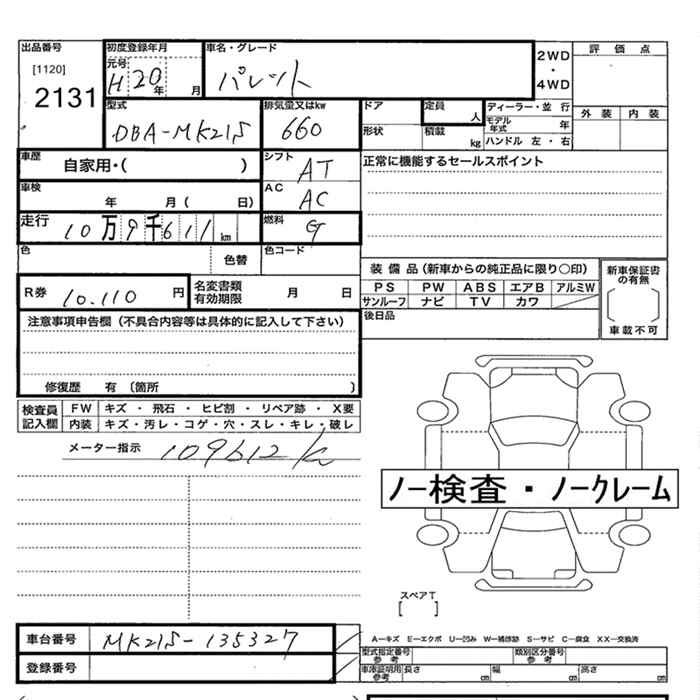 出品番号 初度登録年月 車名・グレード 2WD ・ 4WD 評価点
[1120] 元号 H20年 月 パレット
2131 外装 内装
型式 排気量又はkw ドア 定員 人 ディーラー・並行
DBA-MK21S 660 形状 積載 kg モデル年式 年
ハンドル 左・右
車歴 自家用・( ) シフト AT 正常に機能するセールスポイント
車検 年 月( 日) AC AC
走行 10万9千611km 燃料 G
色 色替 色コード
装備品(新車からの純正品に限り○印) 新車保証書の有無
R券 10.110円 名変書類有効期限 月 日 PS PW ABS エアB アルミW
サンルーフ ナビ TV カワ
車載不可
注意事項申告欄(不具合内容等は具体的に記入して下さい) 後日品
修復歴 有 〔箇所 〕
検査員記入欄 FW キズ ・ 飛石 ・ ヒビ割 ・ リペア跡 ・ X要
内装 キズ・汚レ・コゲ・穴・スレ・キレ・破レ
メーター指示 109612k
ノー検査・ノークレーム
スペアT
[ ]
車台番号 MK21S-135327 A―キズ E―エクボ U―凹み W―補修跡 S―サビ C―腐食 XX―交換済
型式指定番号 参考 類別区分番号 参考
登録番号 車庫証明用 参考 長さ cm 幅 cm 高さ cm